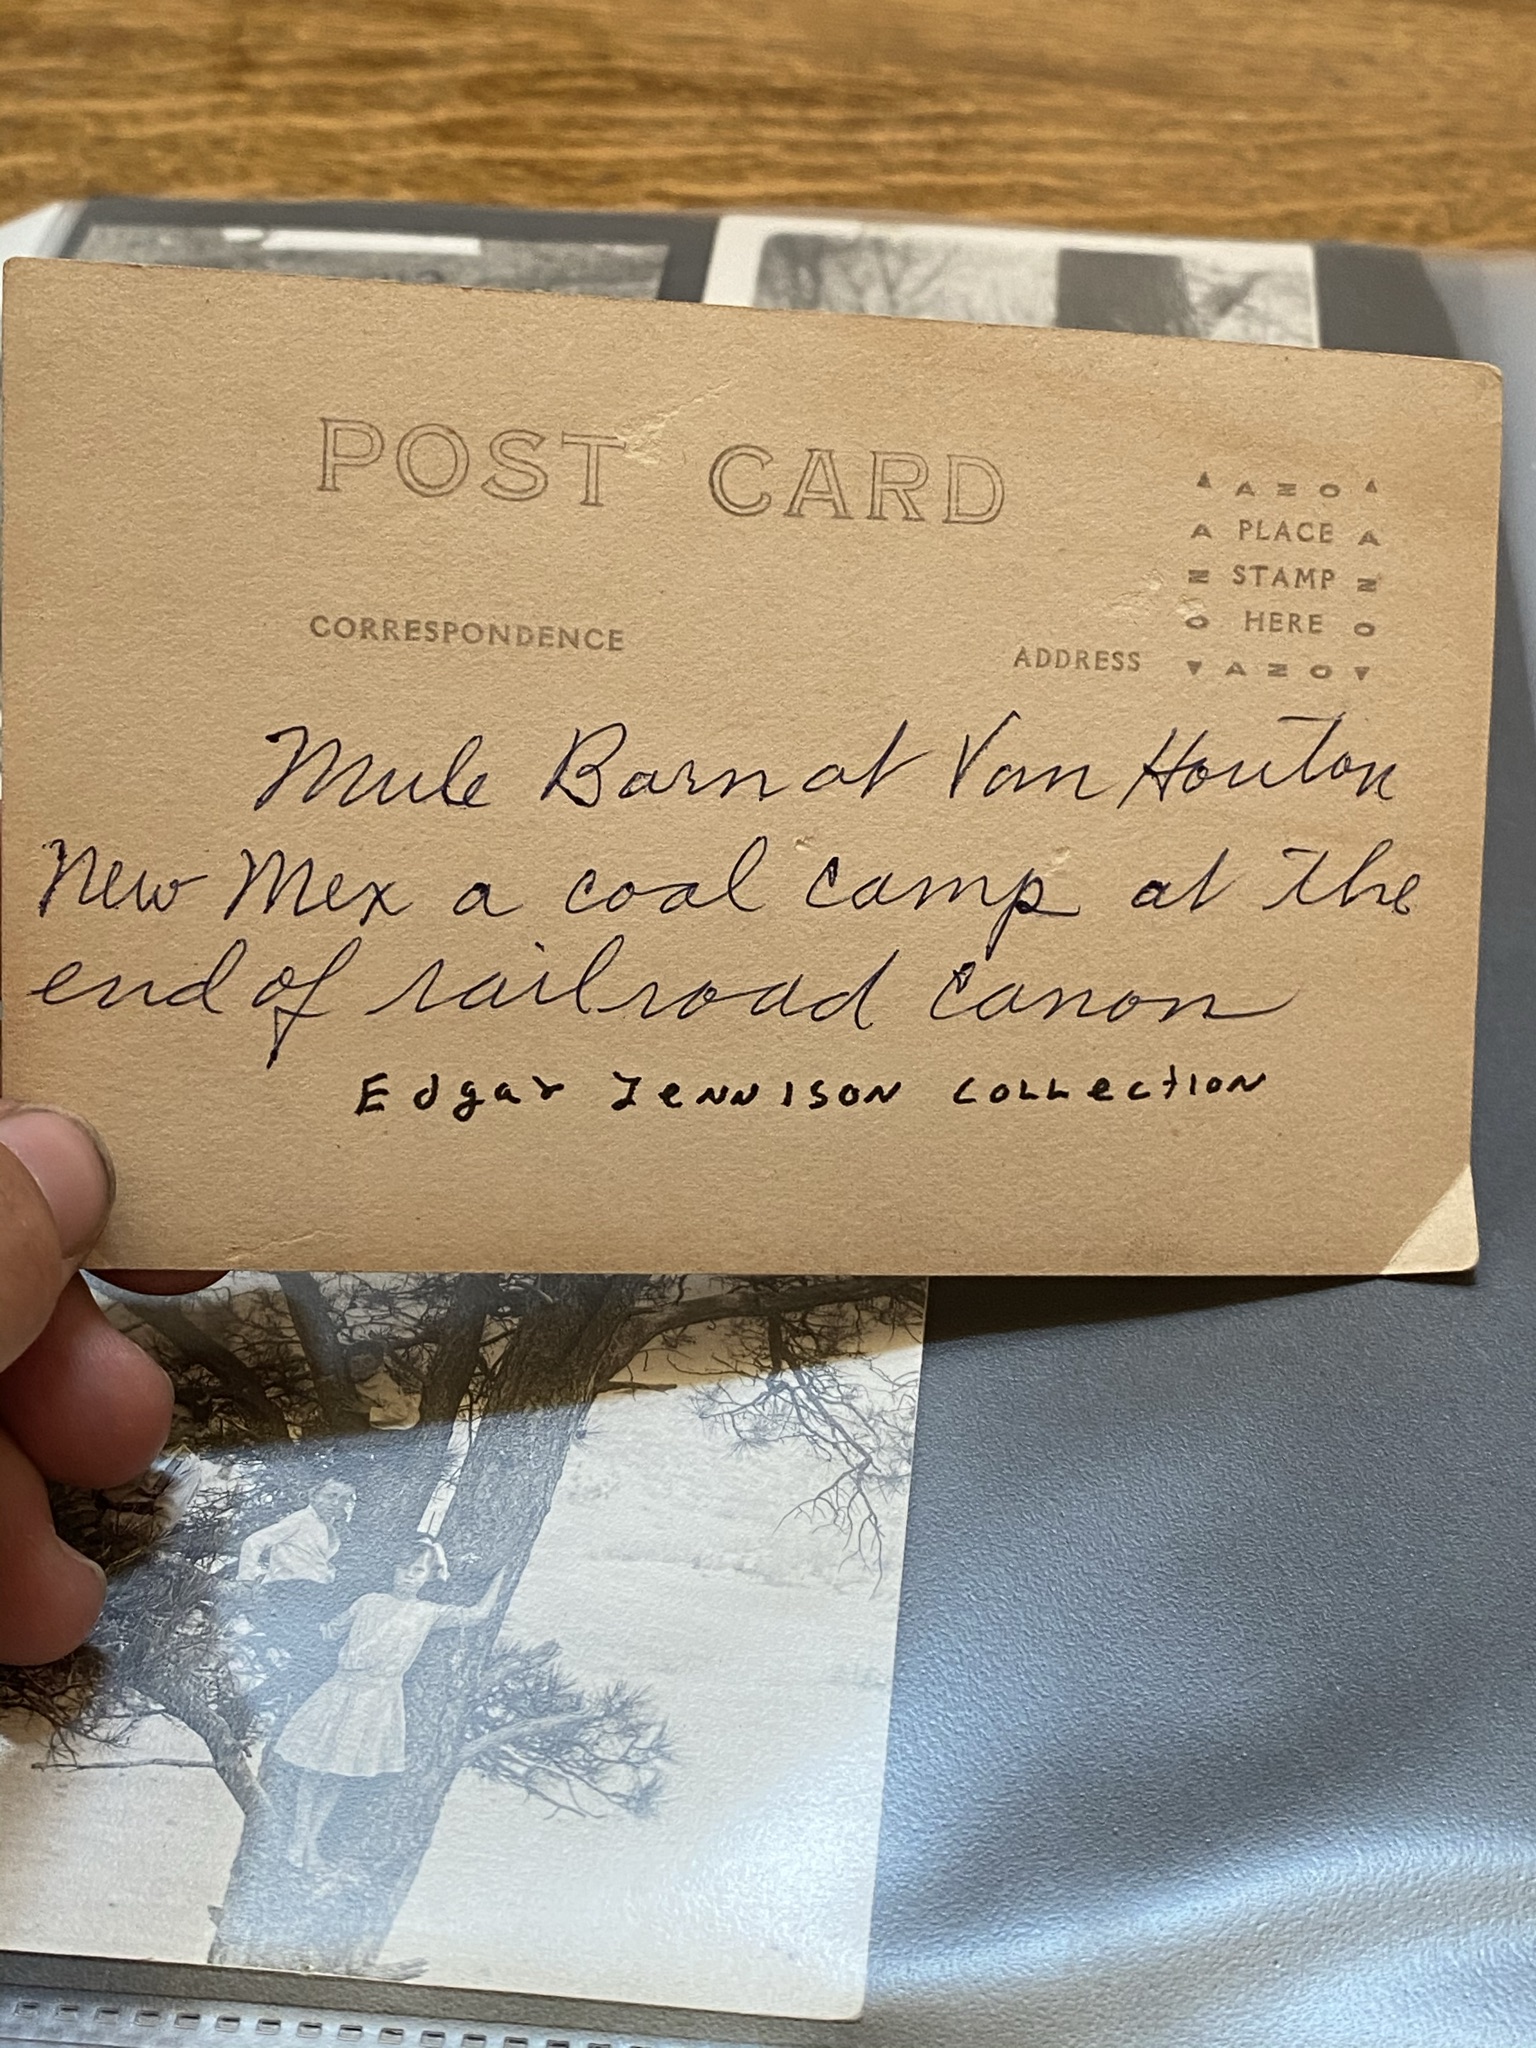 POST CARD
▲ AZO ▲
A PLACE A
Z STAMP Z
O HERE O
▼ AZO ▼
CORRESPONDENCE
ADDRESS
Mule Barn at Van Houton
New Mex a coal camp at the
end of railroad canon
Edgar Jennison Collection